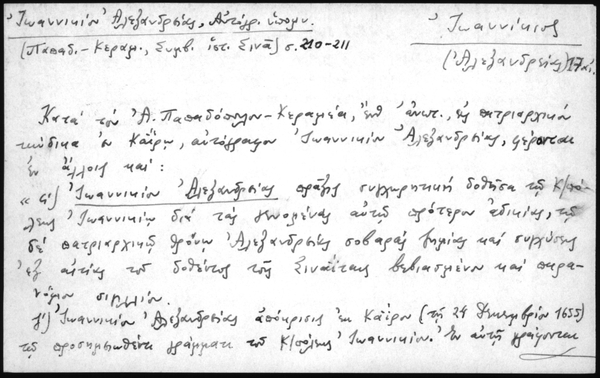 Ἰωαννικίου Ἀλεξανδρείας, Αὐτόγρ. ὑπομν.
(Παπαδ.-Κεραμ., Συμβ. ἱστ. Σινᾶ) σ. 210-211
Ἰωαννίκιος
(Ἀλεξανδρείας) 17 αἰ.
Κατὰ τὸν Ἀ. Παπαδόπουλον-Κεραμέα, ἔνθ' ἀνωτ., εἰς πατριαρχικὸν
κώδικα ἐν Καΐρῳ, αὐτόγραφον Ἰωαννικίου Ἀλεξανδρείας, φέρονται
ἐν ἄλλοις καὶ:
« Ἰωαννικίου Ἀλεξανδρείας πρᾶξις συγχωρητικὴ δοθεῖσα τῷ Κ/πό-
λεως Ἰωαννικίῳ διὰ τὰς γενομένας αὐτῷ πρότερον ἀδικίας, τῷ
δὲ πατριαρχικῷ θρόνῳ Ἀλεξανδρείας σοβαρὰς ζημίας καὶ συγχύσεις
ἐξ αἰτίας τοῦ δοθέντος τοῖς Σιναΐταις βεβιασμένου καὶ παρα-
νόμου σιγιλλίου.
γ') Ἰωαννικίου Ἀλεξανδρείας ἀπόκρισις ἐκ Καΐρου (τῇ 24 Δεκεμβρίου 1655)
τῷ προσημειωθέντι γράμματι τοῦ Κ/πόλεως Ἰωαννικίου. Ἐν αὐτῇ γράφονται